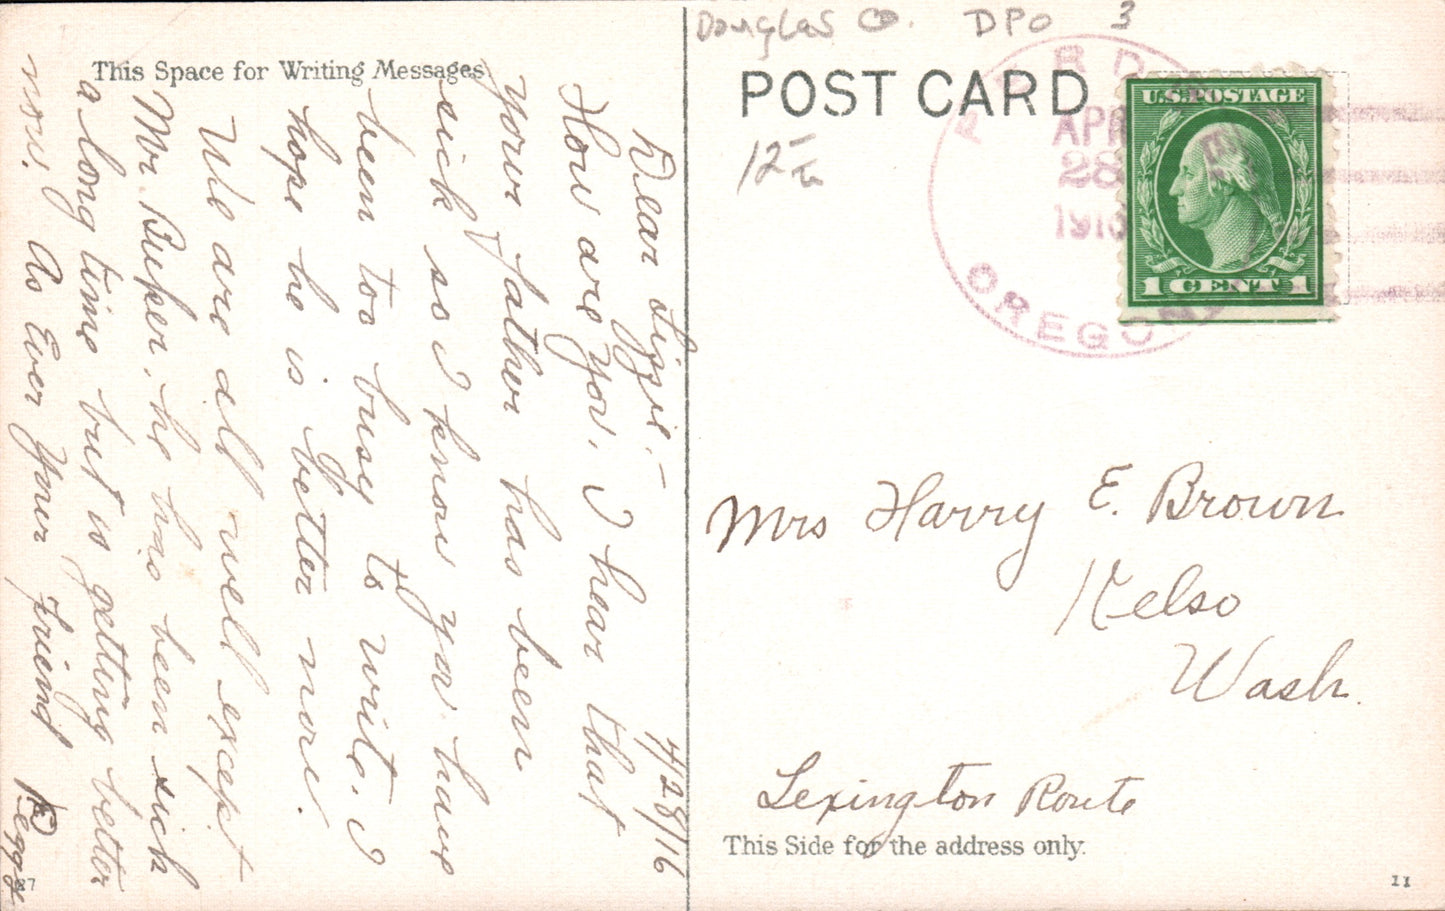 Douglas Co. DPO 3
This Space for Writing Messages
POST CARD
12
APR
28
OREGON
U.S. POSTAGE
1 CENT 1
4/28/16
Dear Lizzie.-
How are you. I hear that
your father has been
sick so I know you have
been too busy to write. I
hope he is better now.
We are all well except
Mr. he has been sick
a long time but is getting better
now. As Ever Your Friend
Peggie
Mrs Harry E. Brown
Kelso
Wash.
Lexington Route
This Side for the address only.
27
11